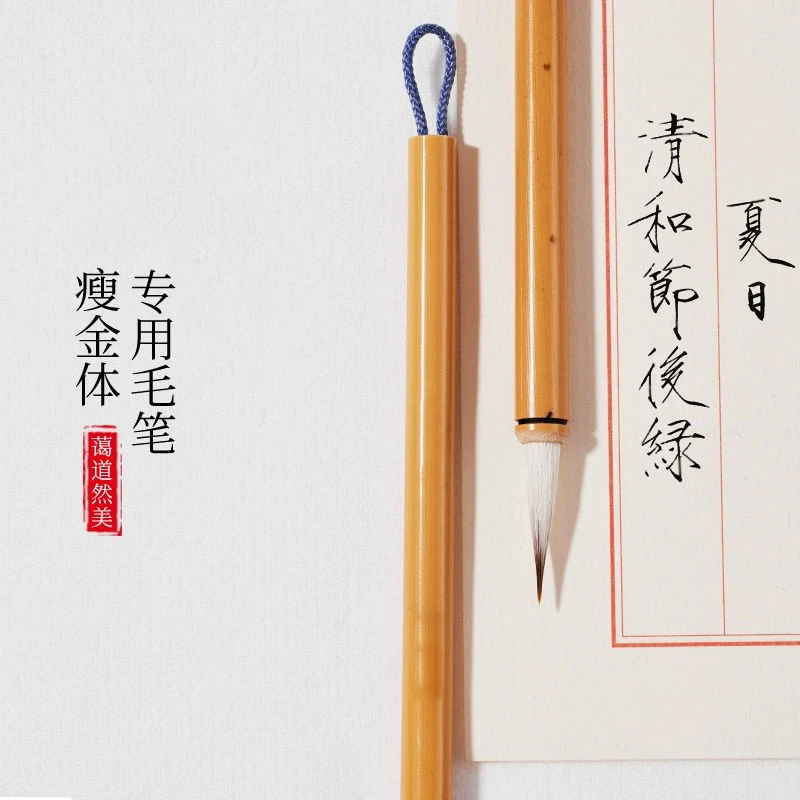 瘦金体
专用毛笔
蔼道然美
夏日
清和節後緑